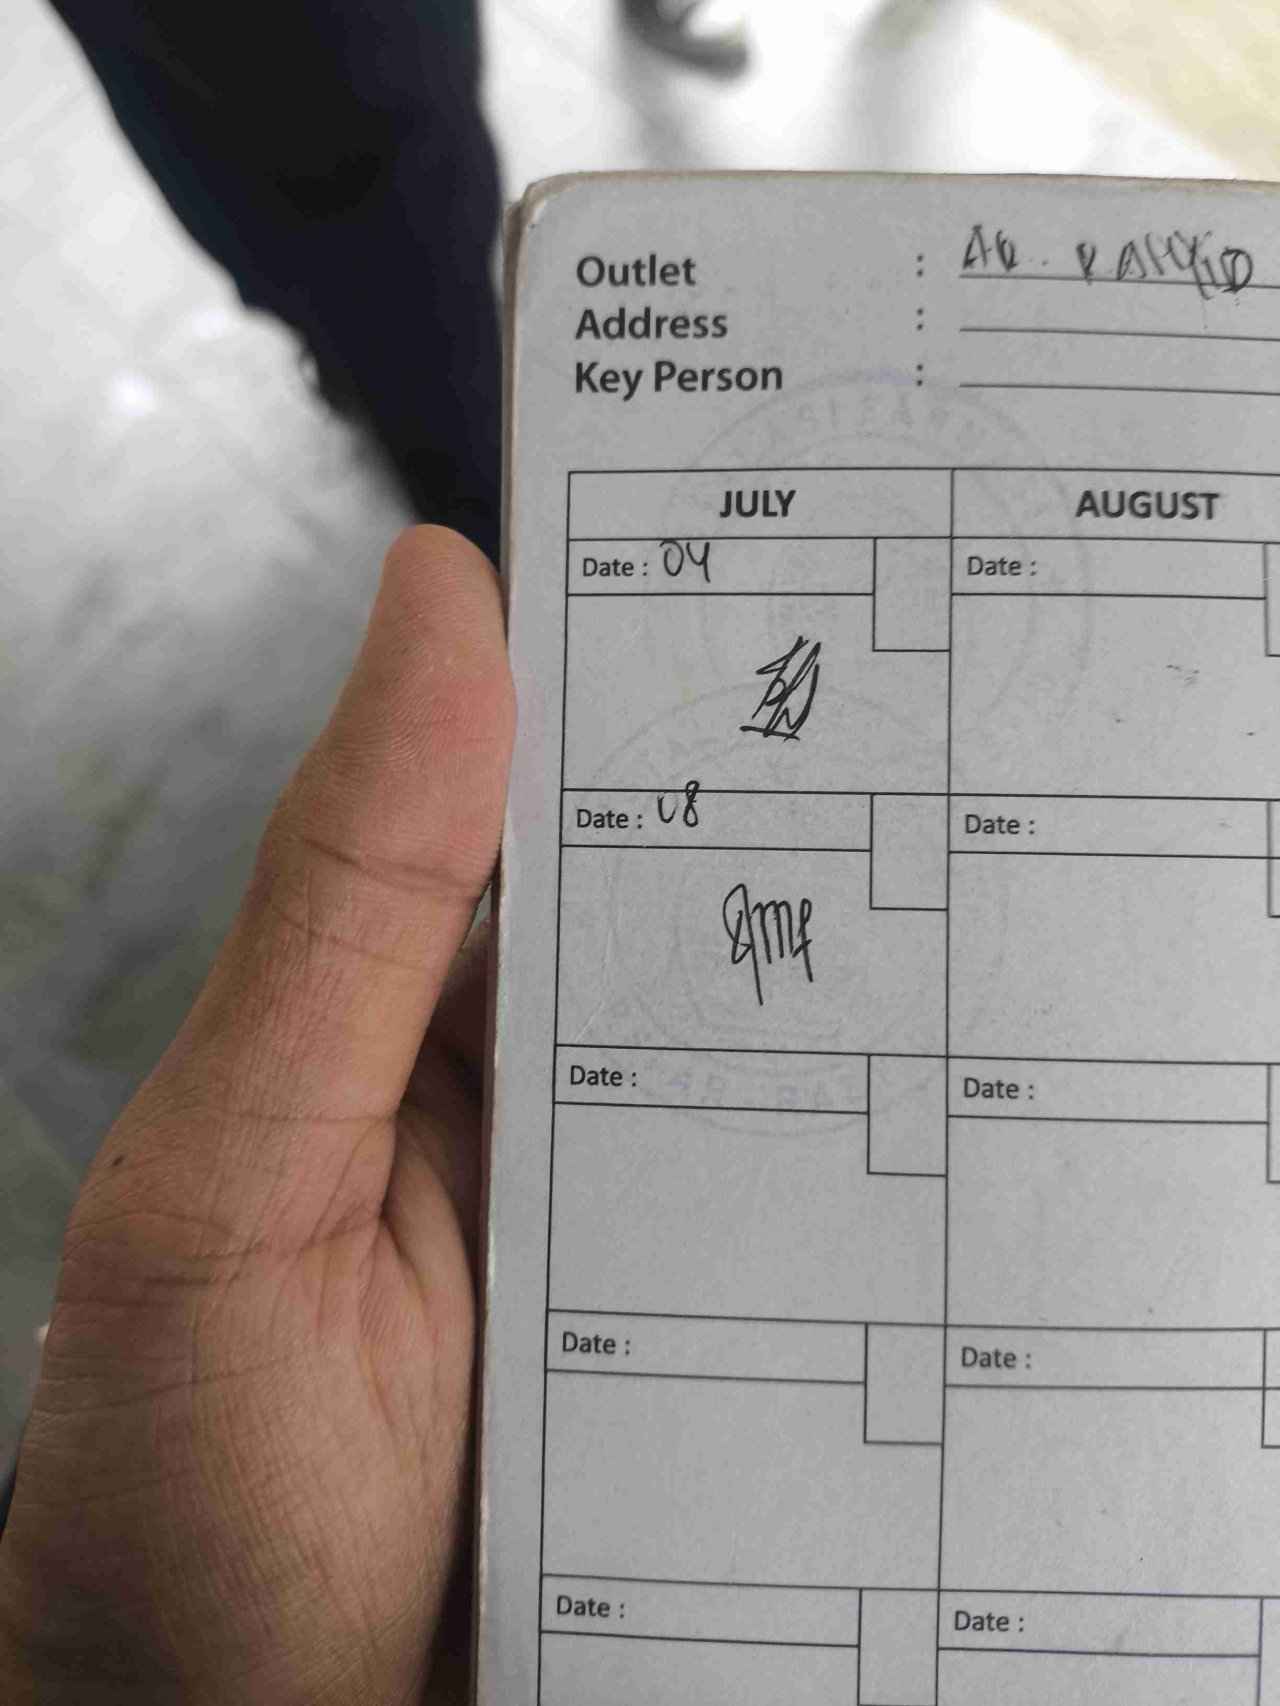 Outlet :
Address :
Key Person :
JULY AUGUST
Date : 04 Date :
Date : 08 Date :
Date : Date :
Date : Date :
Date : Date :